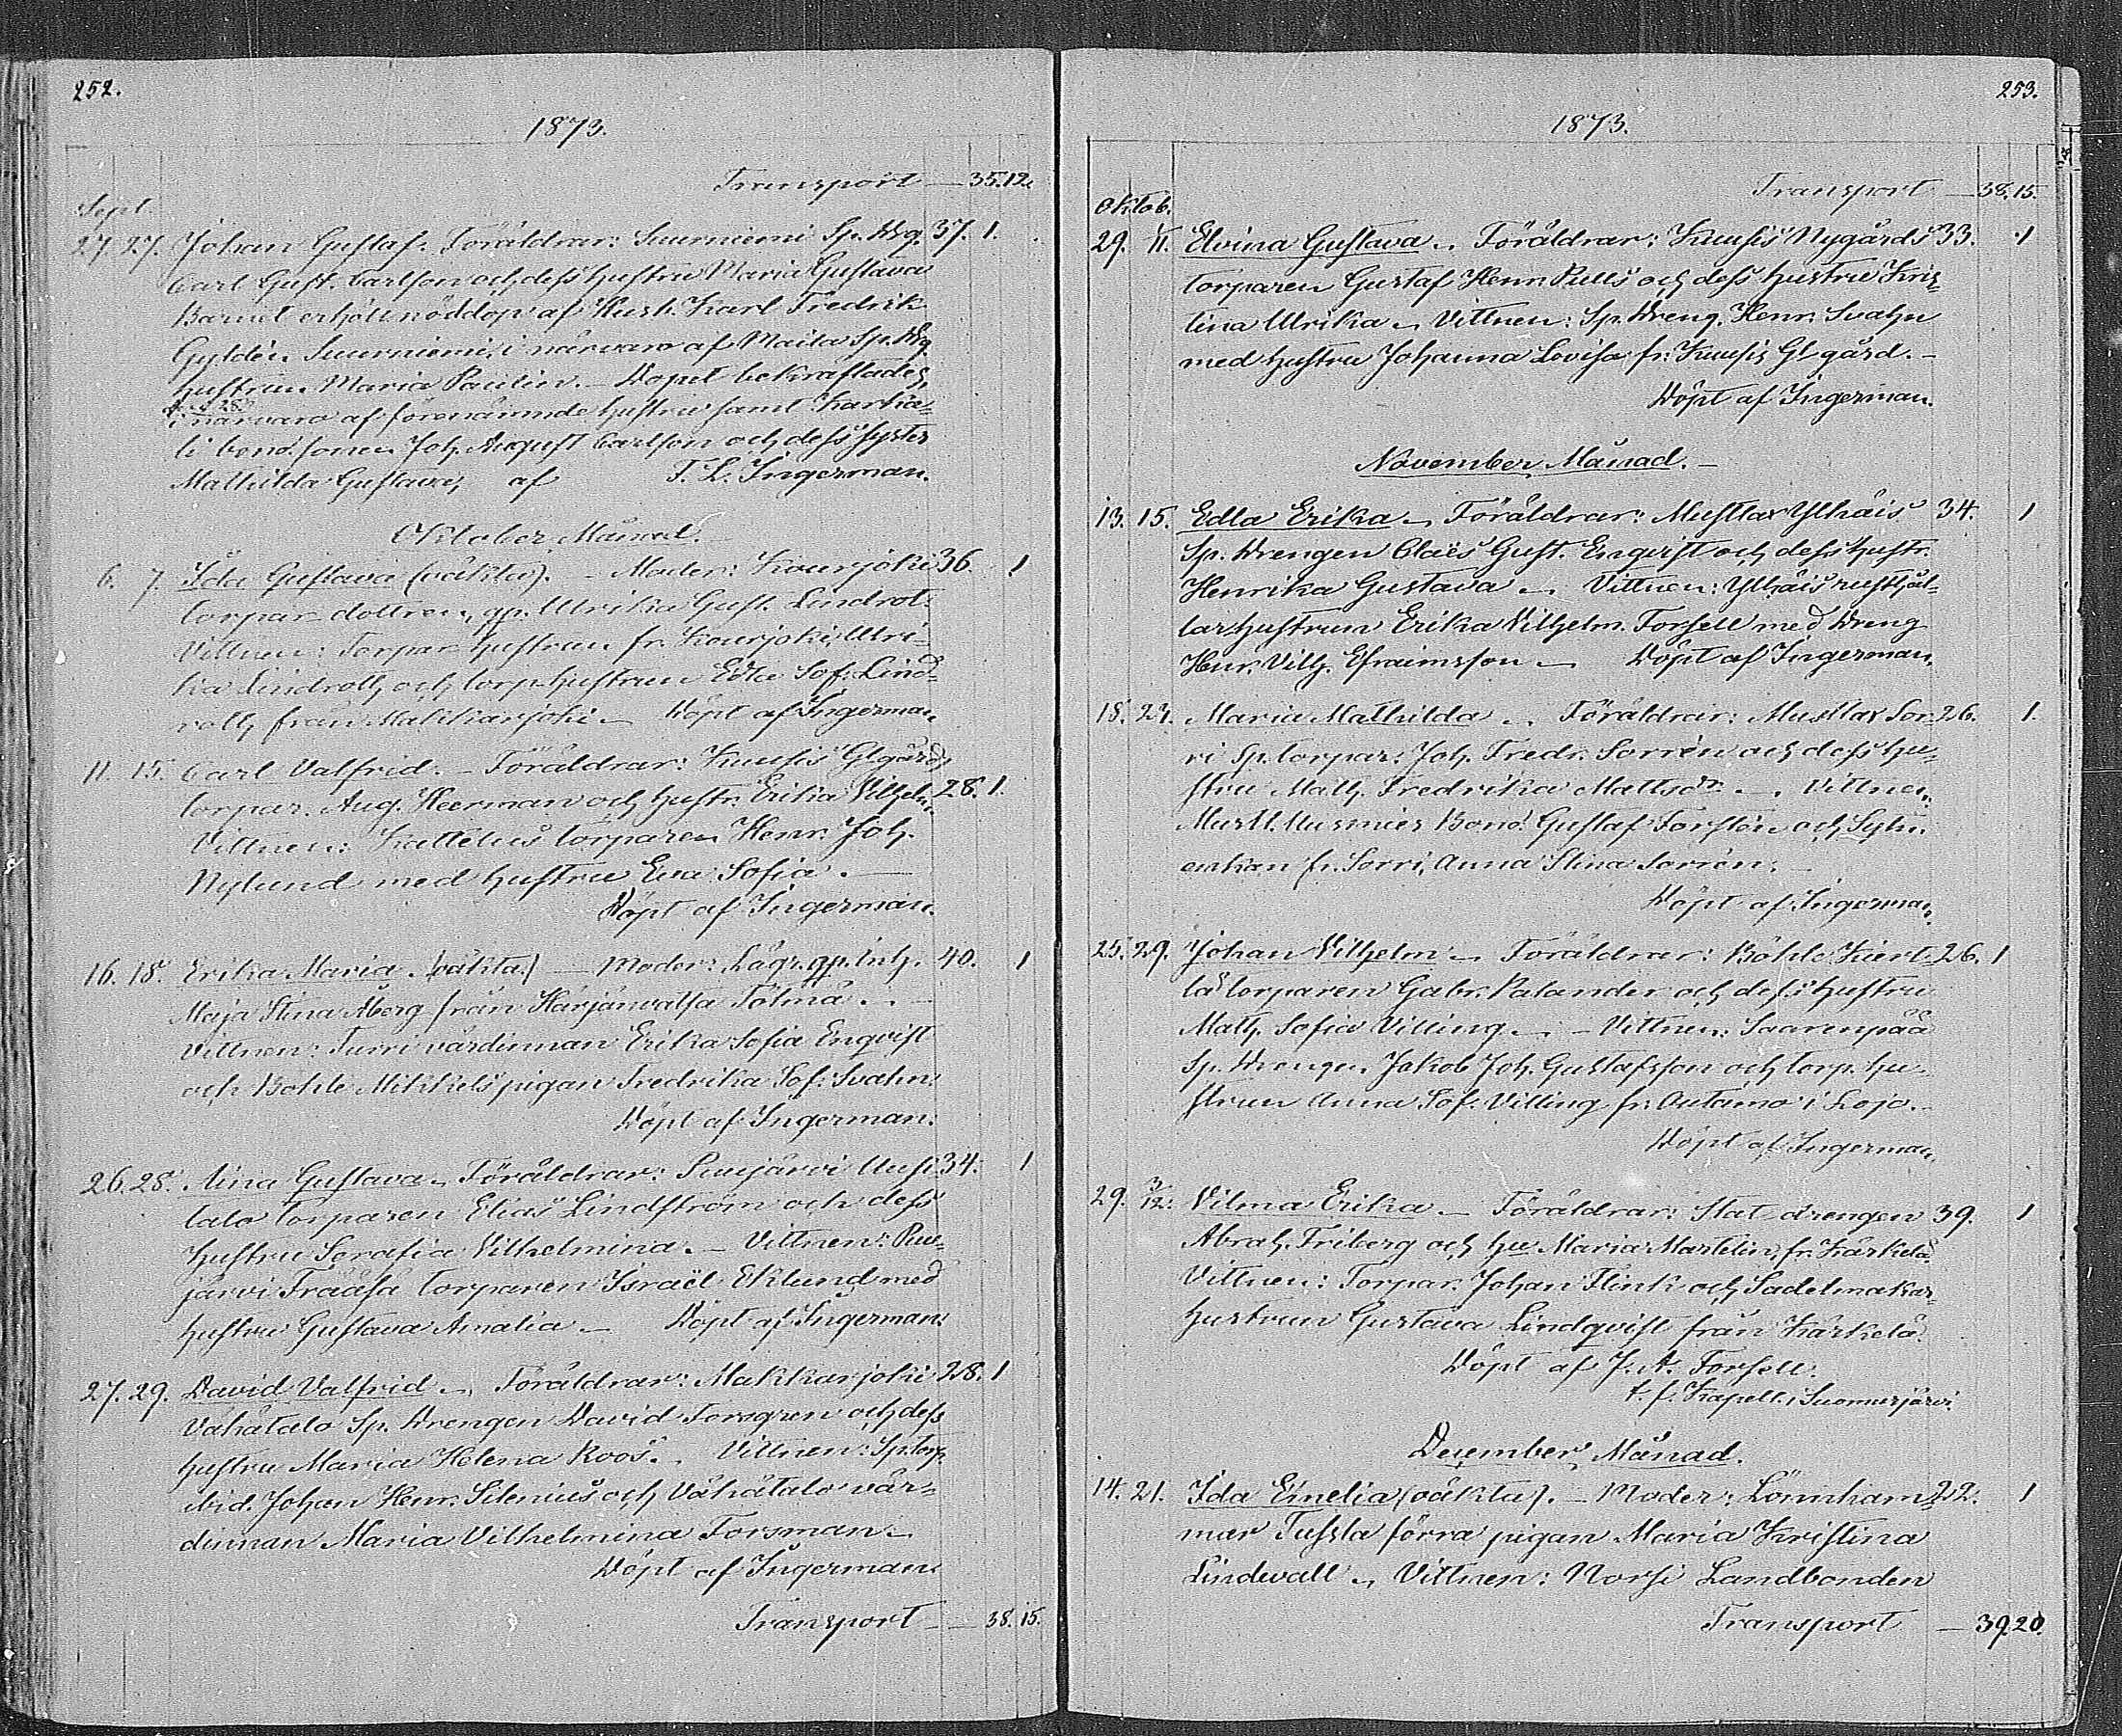 252.
1873.
Transport — 35. 12.
Sept.
27. 27. Johan Gustaf. Föräldrar: Suurniemi Sp. Drg. 37. 1.
Carl Gust. Carlson och dess hustru Maria Gustava
Barnet erhöll nöddop af Husb. Karl Fredrik
Gyldén Suurniemi, i närvaro af Maila Sp. Drg.
hustrun Maria Paulin. — Dopet bekräftades,
i närvaro af förenämnde hustru samt Karkia-
li bondsonen Joh. August Carlson och dess syster
Mathilda Gustava, af T. L. Ingerman.
Oktober Månad.
6. 7. Ida Gustava (oäkta). — Moder: Kourjoki 36. 1
torpar dottren, gp. Ulrika Gust. Lindrot.
Vittnen: Torpar hustrun fr. Kourjoki, Ulri-
ka Lindroth och torp. hustrun Edla Sof. Lind-
roth från Makkarjoki. — Döpt af Ingerman.
11. 15. Carl Valfrid. — Föräldrar: Kuusis Glgårds
torpar. Aug. Heerman och hustr. Erika Vilhelm. 28. 1.
Vittnen: Kattelus torparen Henr. Joh.
Nylund med hustru Eva Sofia. —
Döpt af Ingerman.
16. 18. Erika Maria (oäkta) — Moder: Lägr. gp. Inh. 40. 1
Maja Stina Åberg från Härjänvatsa Tölmä. —
Vittnen: Turri värdinnan Erika Sofia Enqvist
och Bohle Mikkels pigan Fredrika Sof. Svahn.
Döpt af Ingerman.
26. 28. Aina Gustava. Föräldrar: Puujärvi Uusi- 34. 1
talo torparen Elias Lindström och dess
hustru Serafia Vilhelmina. — Vittnen: Puu-
järvi Fräåsa torparen Israël Eklund med
hustru Gustava Amalia. — Döpt af Ingerman.
27. 29. David Valfrid. Föräldrar: Makkarjoki 28. 1
Vähätalo Sp. Drengen David Forsgren och dess
hustru Maria Helena Roos. Vittnen: Sp. torp.
ibid. Johan Henr. Silenius och Vähätalo vär-
dinnan Maria Vilhelmina Forsman. —
Döpt af Ingerman.
Transport — 38. 15.
253.
1873.
Transport — 38. 15.
Oktob.
29. 11. Elvina Gustava. Föräldrar: Kuusis Nygårds 33. 1
torparen Gustaf Henr. Pulls och dess hustru Kris-
tina Ulrika. Vittnen: Sp. Dreng. Henr. Svahn
med hustru Johanna Lovisa fr. Kuusis Gl gård. —
Döpt af Ingerman.
November Månad. —
13. 15. Edla Erika. Föräldrar: Musttax Ylhäis 34. 1
Sp. Drengen Claës Gust. Enqvist och dess hustr.
Henrika Gustava. Vittnen: Ylhäis rusthål-
lar hustrun Erika Vilhelm. Forsell med Dreng
Henr. Vilh. Efraimsson — Döpt af Ingerman.
18. 23. Maria Mathilda. Föräldrar: Musttax Sor- 26. 1.
ri Sp. torpar. Joh. Fredr. Sorrén och dess hu-
stru Math. Fredrika Mattsdr. — Vittnen:
Mustl. Uusmies Bond. Gustaf Forstén och Sytn.
enkan fr. Sorri, Anna Stina Sorrén.
Döpt af Ingerman.
25. 29. Johan Vilhelm. Föräldrar: Böhle Kiert- 26. 1
lä torparen Gabr. Palander och dess hustru
Math. Sofia Villing. — Vittnen: Saarenpää
Sp. Drengen Jakob Joh. Gustafsson och torp. hu-
strun Anna Sof. Villing fr. Outamo i Lojo. —
Döpt af Ingerman.
29. 3/12. Vilma Erika. — Föräldrar: Stat drengen 39. 1
Abrah. Friberg och hu Maria Martelin, fr. Kärkelä.
Vittnen: Torpar. Johan Flink och Sadelmakar
hustrun Gustava Lindqvist från Kärkelä.
Döpt af J. A. Forsell.
t. f. Kapell. i Suomusjärvi.
December Månad.
14. 21. Ida Emelia (oäkta). — Moder: Lönnham- 22. 1
mar förra pigan Maria Kristina
Lindevall. Vittnen: Norsi Landbonden
Transport — 39. 20.